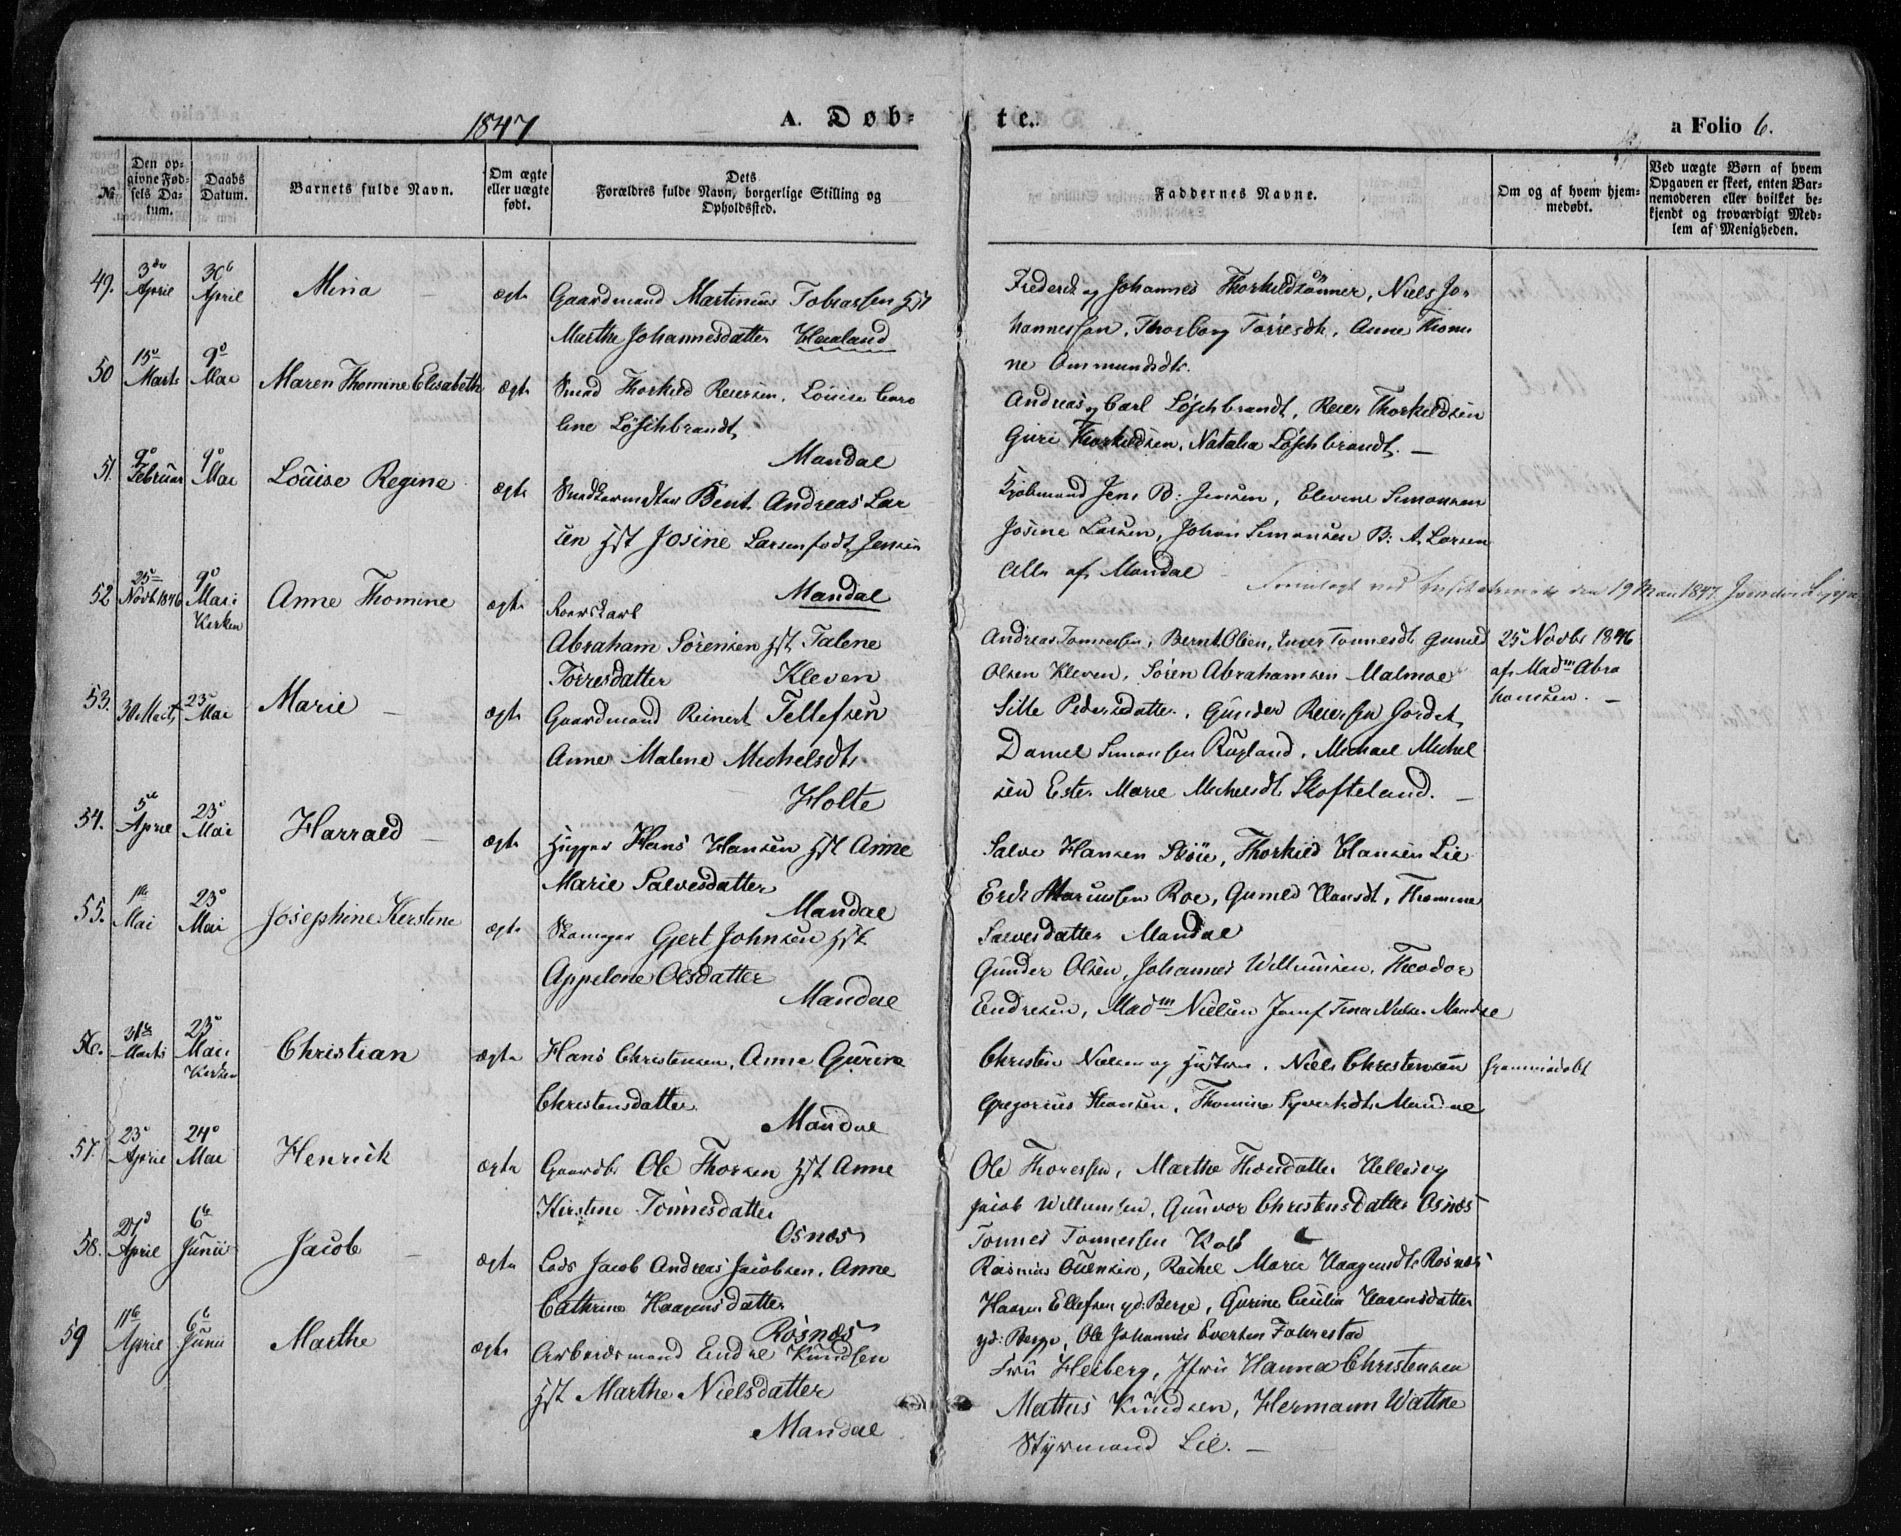 1847 A. Døb- te. a Folio 6.
No.
Den opgivne Fødsels Datum.
Daabs Datum.
Barnets fulde Navn.
Om ægte eller uægte født.
Dets Forældres fulde Navn, borgerlige Stilling og Opholdssted.
Faddernes Navne.
Om og af hvem hjemmedøbt.
Ved uægte Børn af hvem Opgaven er skeet, enten Barnemoderen eller hvilket bekjendt og troværdigt Medlem af Menigheden.
49. 3die April 30 April Mina ægte Gaardmand Martinius Tobiassen Hst
Marthe Johannesdatter Haaland
Frederik og Johannes Thorkildsønner, Niels Jo-
hannessen, Thorborg Torresdt, Anne Thomi
ne Ommundsdtr.
50 15 Marts 9 Mai Maren Thomine Elisabeth ægte Smed Thorkild Reiersen, Louise Caro
line Löschbrandt,
Mandal
Andreas og Carl Löschbrandt, Reier Thorkildsen
Guri Thorkildsen, Natalia Löschbrandt. —
51. 9 Februar 9 Mai Louise Regine ægte Bent Andreas Lar
sen Hst Josine Larsen født Jensen
Mandal
Kjøbmand Jens B: Jensen, Elevine Simonsen
Josine Larsen, Johan Simonsen B: A. Larsen
Alle af Mandal
den 19 1847
52 25 Novbr 1846 9 Mai Kirken Anne Thomine ægte
Abraham Sörensen Hst Talene
Törresdatter Kleven
Andreas Tønnessen, Bernt Olsen, Inger Tønnesdt Gunild
Olsen Kleven, Sören Abrahamsen Malmøe
25 Novbr 1846
af Madm Abra
hamsen. —
53. 30 Marts 23 Mai Marie — ægte Gaardmand Reinert Tellefsen
Anne Malene Michelsdtr
Holte
Sille Pedersdatter, Gunder Reiersen Jordet,
Daniel Simonsen Rugland, Michael Michel
sen Ester Marie Michelsdt Skofteland. —
54. 5te April 23 Mai Harrald — ægte Hans Hansen Hst Anne
Marie Salvesdatter
Mandal
Salve Hansen Skøie, Thorkild Hansen Lie
Erik Roe, Gunild Hansdt, Thomine
Salvesdatter Mandal
55. 1te Mai 23 Mai Josephine Kirstine ægte Skomager Gjert Johnsen Hst
Appelone Olsdatter
Mandal
Gunder Olsen, Johannes Willumsen, Theodor
Endresen, Madm Nielsen Jomf Tina Nielsen Mandal
56. 31te Marts 23 Mai Kirken Christian ægte Hans Christensen, Anne Gurine
Christensdatter
Mandal
Christen Nielsen og Hustru, Niels Christensen
Gregorius Hansen, Thomine Syvertsdt Mandal
hjemmedøbt
57. 23 April 24 Mai Henrich ægte Gaardbr Ole Thorsen Hst Anne
Kirstine Tönnesdatter
Osnæs
Ole Thoressen, Marthe Thorsdatter Vellevog
Jacob Willumsen, Gunvor Christensdatter Osnæs
Tonnes Tonnessen Kolb
58. 27 April 6te Junii Jacob — ægte Lods Jacob Andreas Jacobsen, Anne
Cathrine Haagensdatter
Rosnæs
Rasmus Evensen, Rachel Marie Haagensdt Rosnæs
Haaven Ellefsen yd: Berge, Gurine Cecilia Haagensdatter
yd: Berge, Ole Johannis Evertsen Fahrestad
59 11te April 6te Junii Marthe ægte Arbeidsmand Endre Knudsen
Hst Marthe Nielsdatter
Mandal
Fru Heiberg, Jfru Hanna Christensen
Mathis Knudsen, Hermann Wattne
Styrmand Lie. —